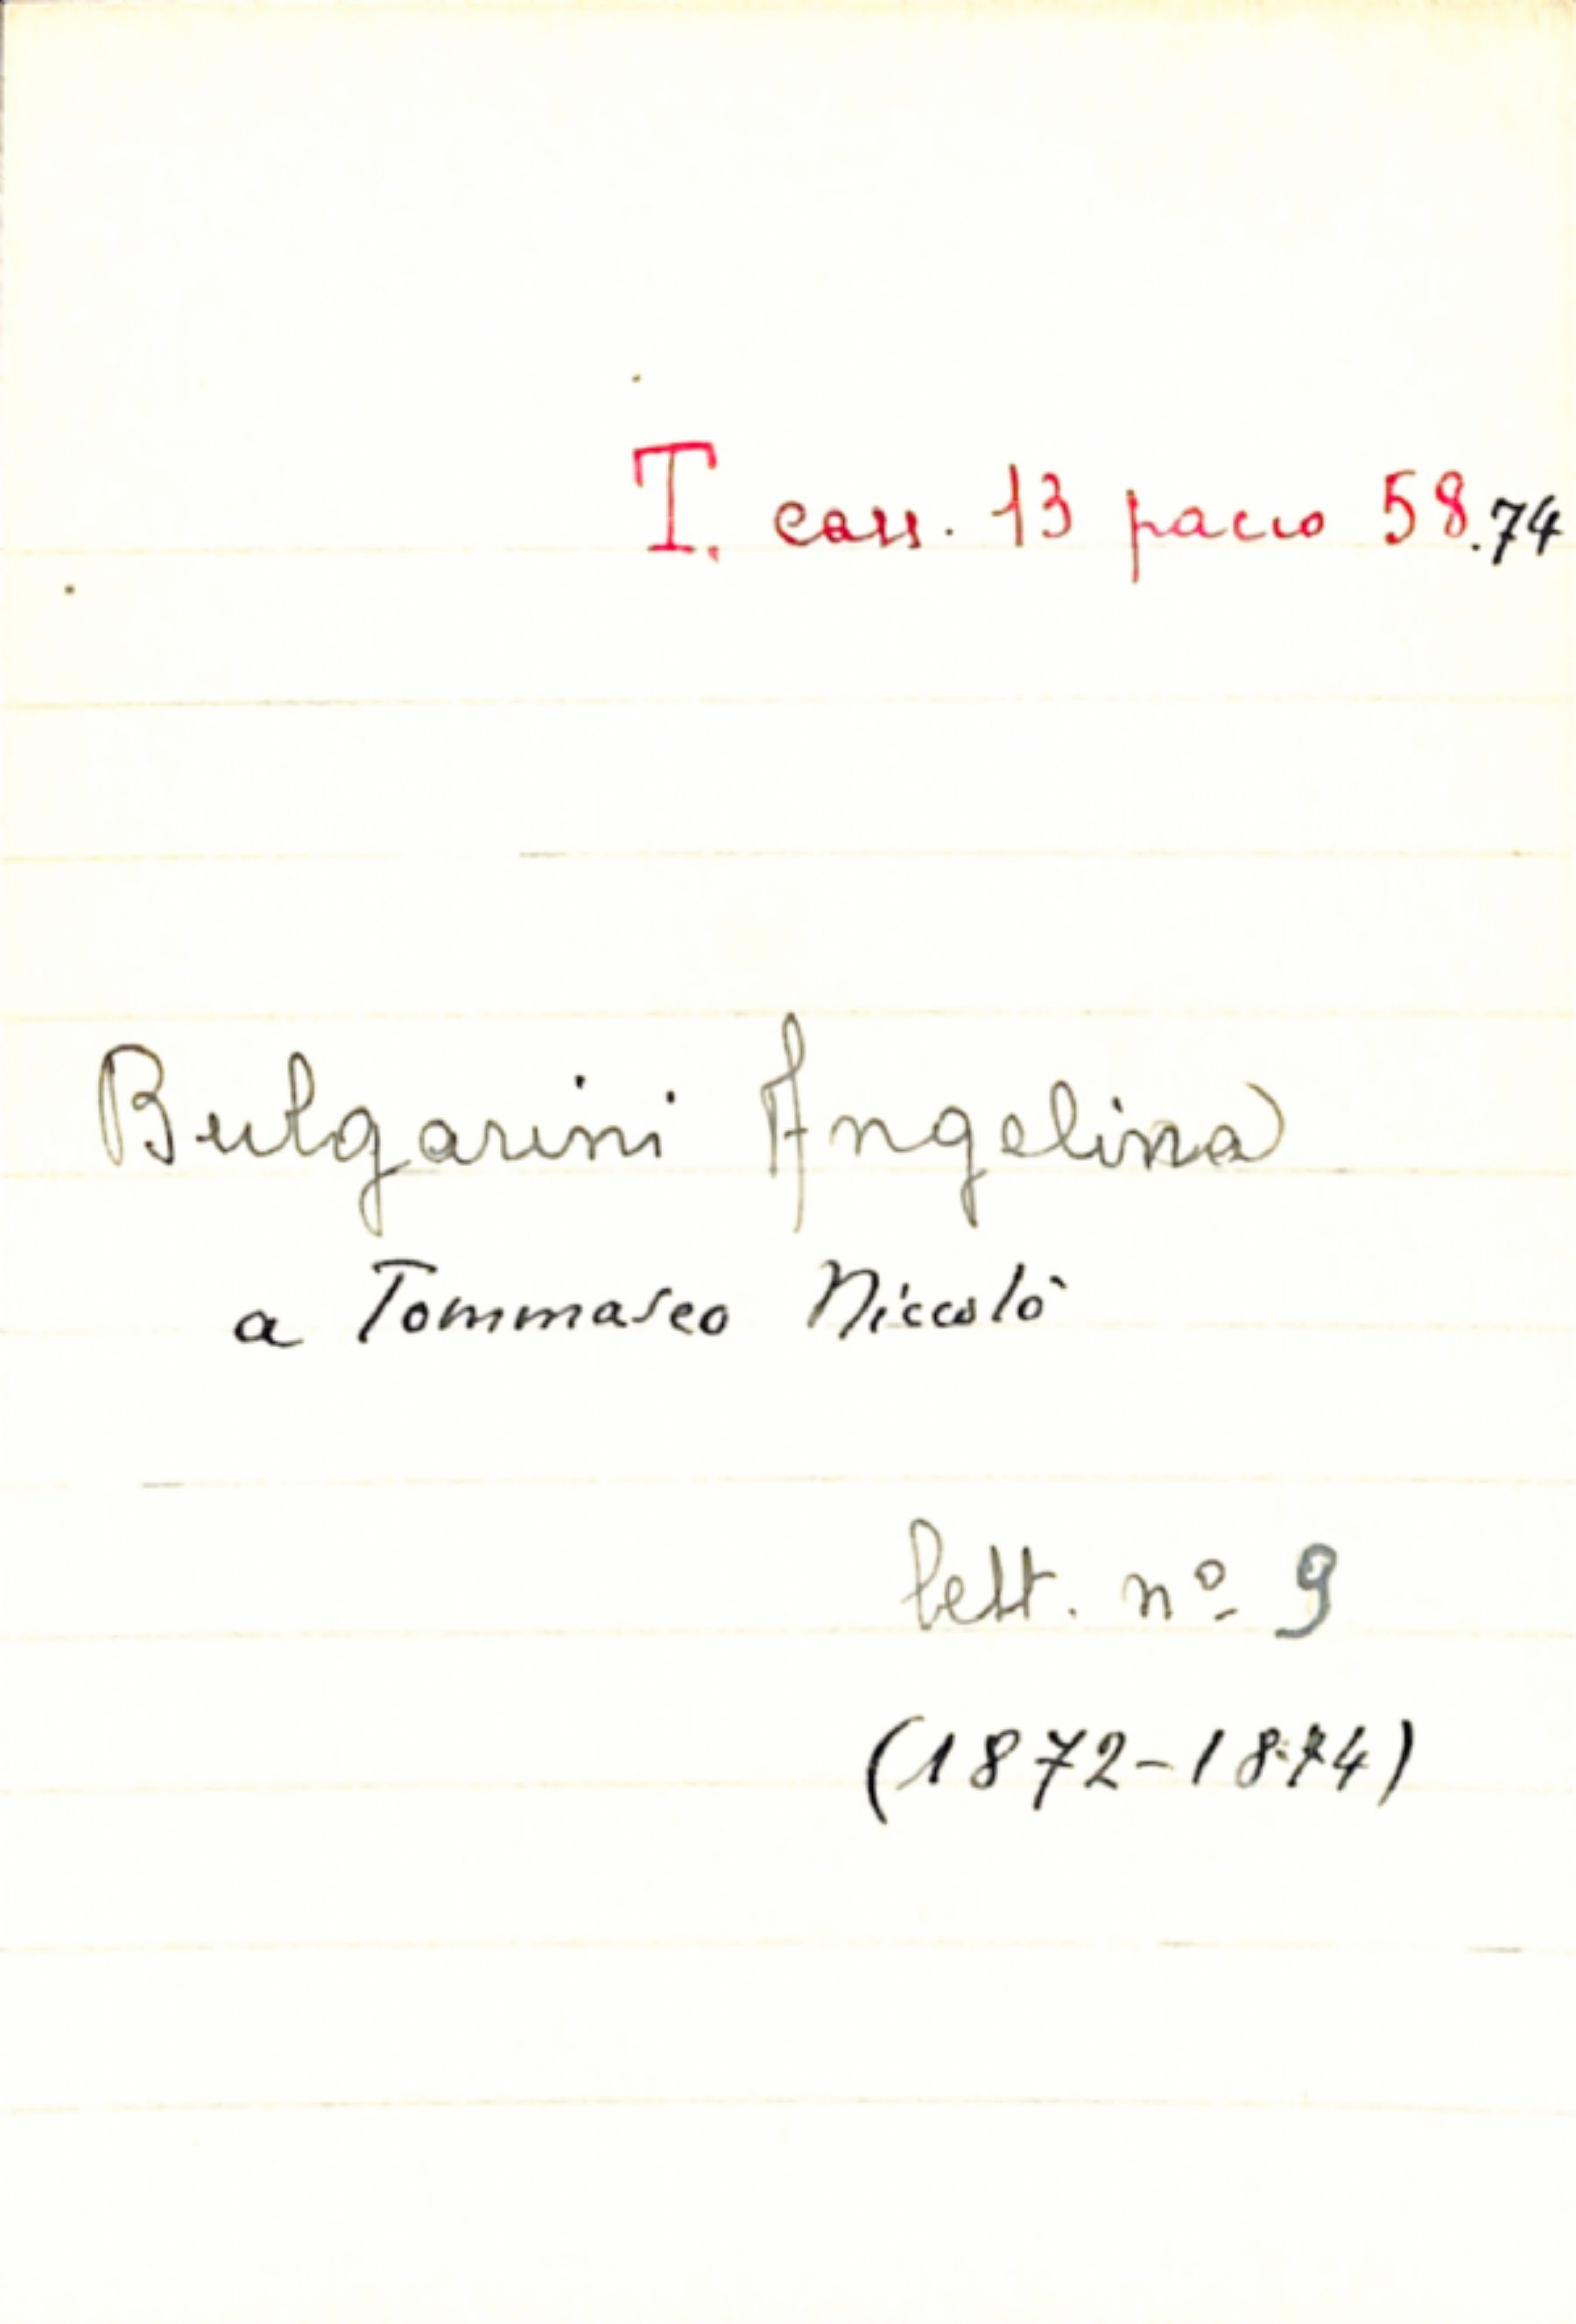 T. cass. 13 pacco 58.74
Bulgarini Angelina
a Tommaseo Niccolò
lett. nº 9
(1872-1874)